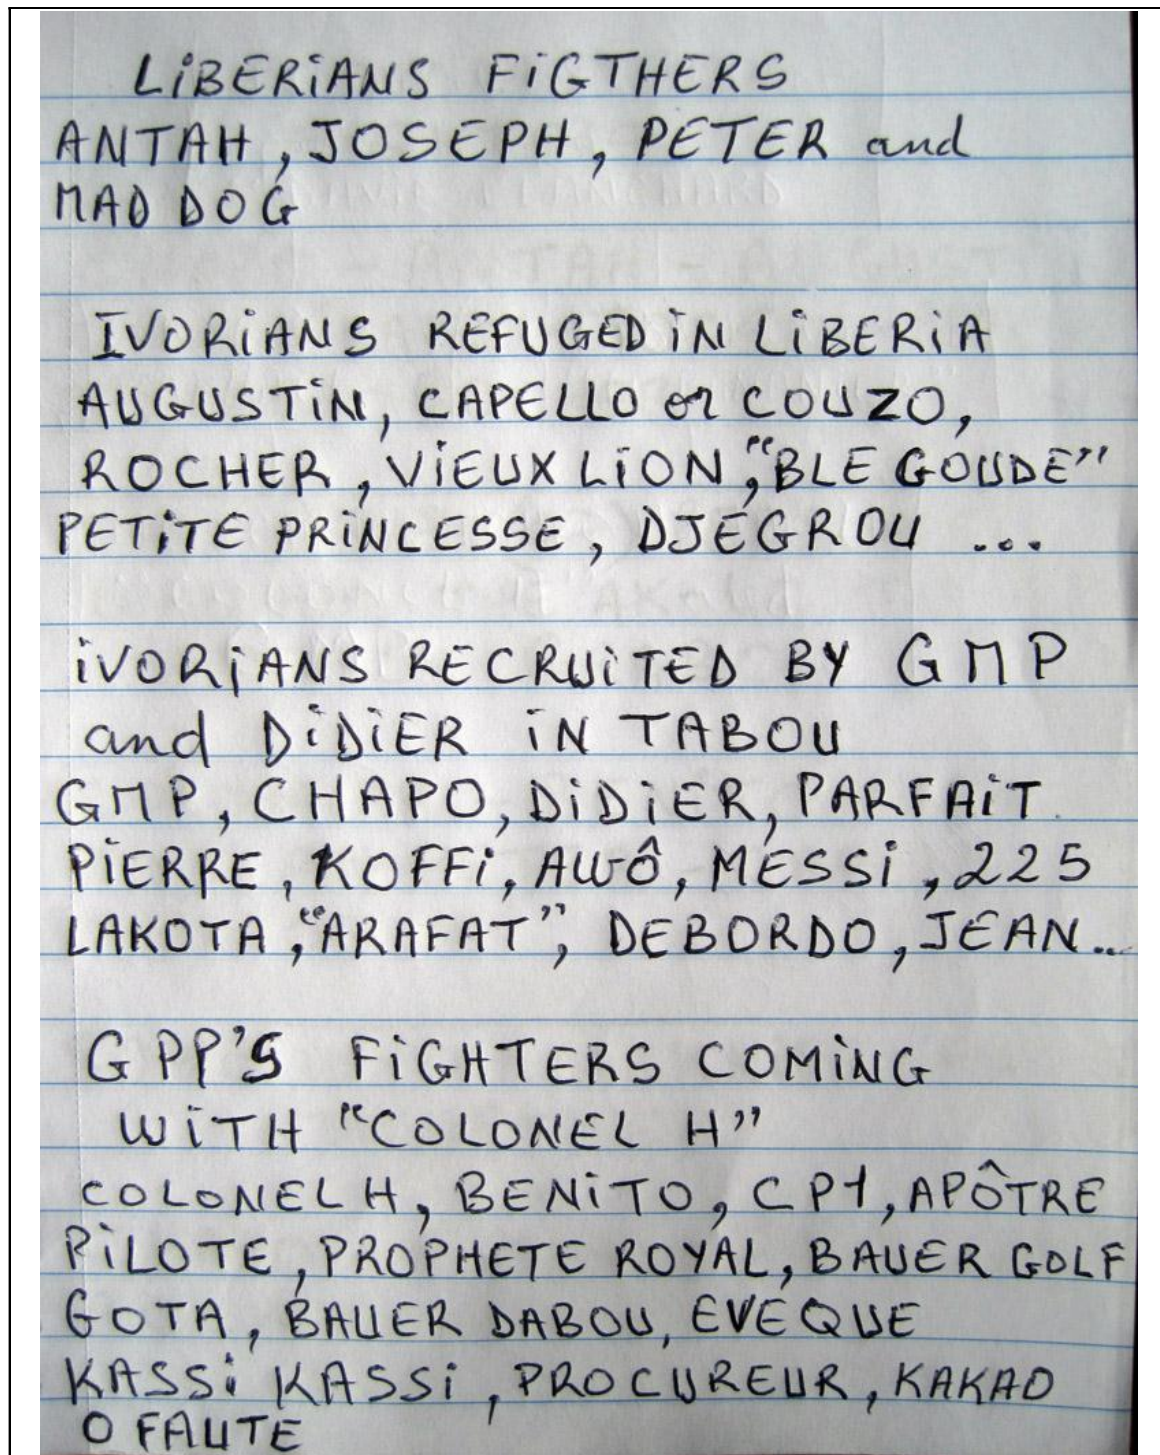 LiBERiANS FiGTHERS
ANTAH, JOSEPH, PETER and
MAD DOG
IVORiANS REFUGED iN LiBERiA
AUGUSTiN, CAPELLO or COUZO,
ROCHER, ViEUX LiON, "BLE GOUDE"
PETiTE PRiNCESSE, DJEGROU ...
iVORiANS RECRUiTED BY GMP
and DiDiER iN TABOU
GMP, CHAPO, DiDiER, PARFAiT
PiERRE, KOFFi, AWÔ, MESSi, 225
LAKOTA, "ARAFAT", DEBORDO, JEAN...
GPP'S FiGHTERS COMiNG
WiTH "COLONEL H"
COLONEL H, BENiTO, CP1, APÔTRE
PiLOTE, PROPHETE ROYAL, BAUER GOLF
GOTA, BAUER DABOU, EVEQUE
KASSi KASSi, PROCUREUR, KAKAO
O FAUTE